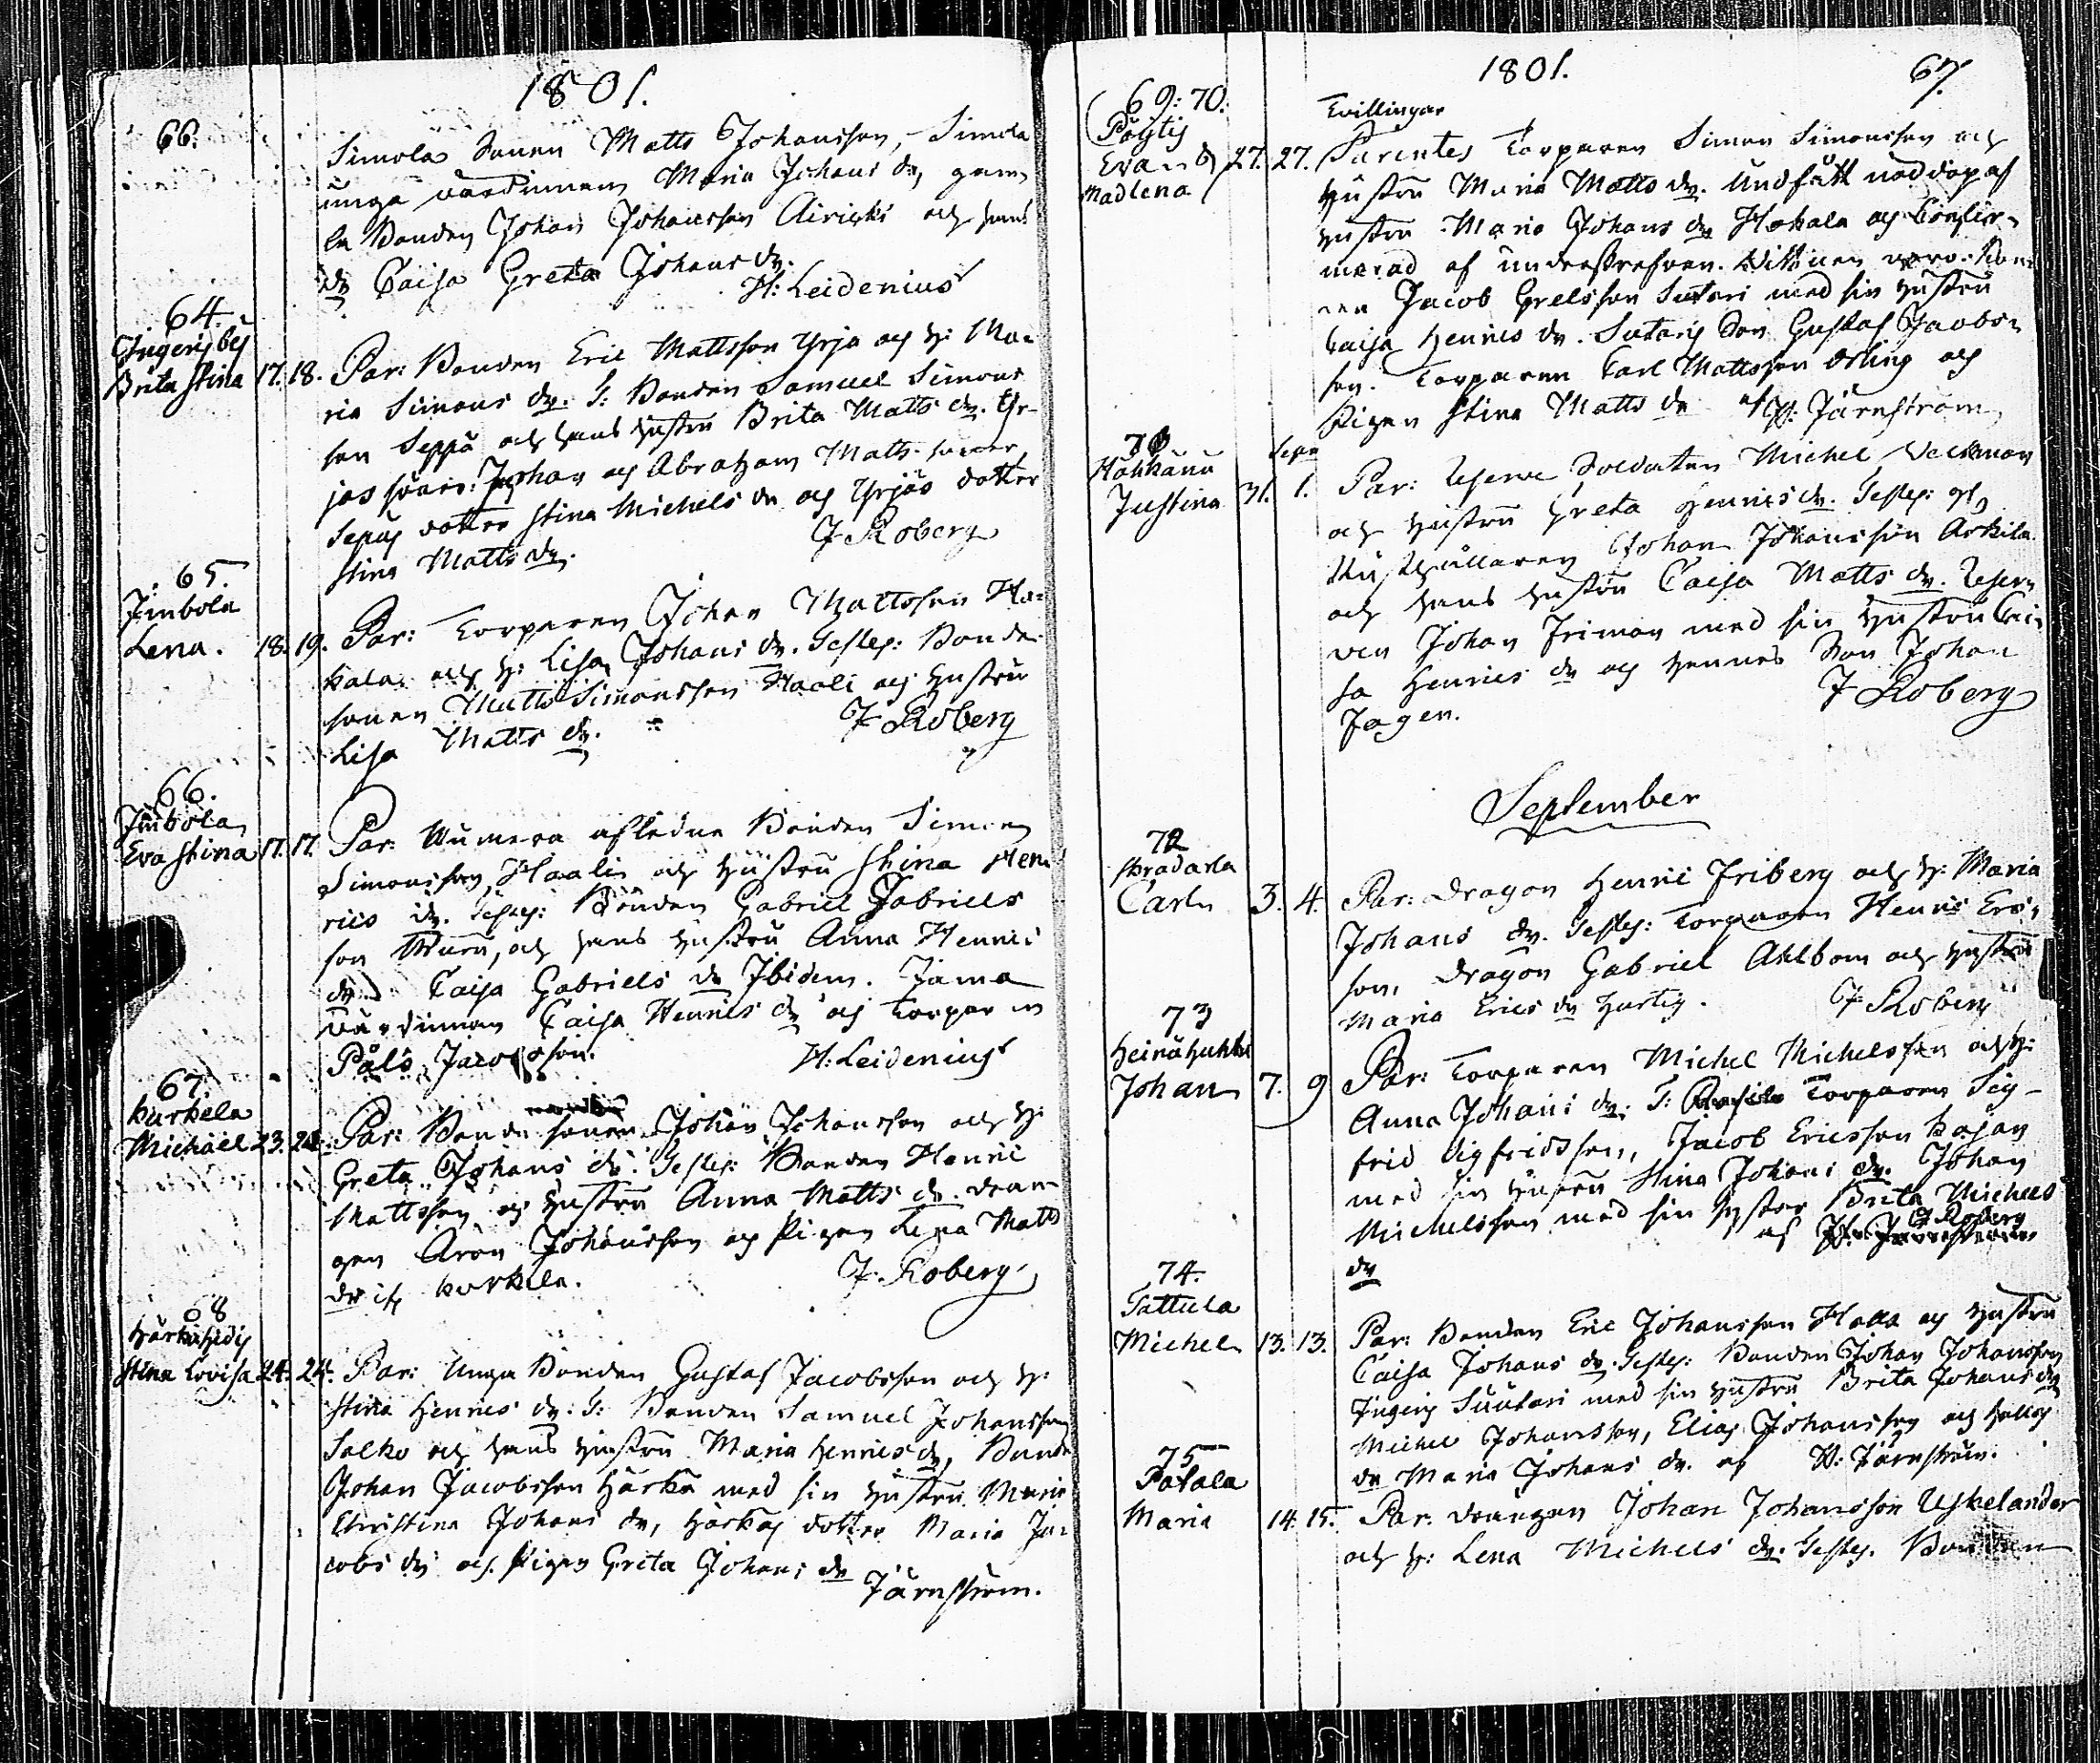 1801.
66.
Simola Sonen Matts Johansson, Simola
unga värdinnan Maria Johans dr, gam
la Bonden Johan Johansson Airicki och hans
dr Caisa Greta Johans dr.
H: Leidenius
64.
Ingeris by
Brita Stina 17. 18. Par: Bonden Eric Mattsson Yrja och h: Ma-
ria Simons dr. T: Bonden Samuel Simons
son Seppä och hans hustru Brita Matts dr. Yr-
jas söner: Johan och Abraham Matts söner,
Sepäs dotter Stina Michels dr och Yrjäs dotter
Stina Matts dr.
J Roberg
65.
Jimbola
Lena. 18. 19. Par: Torparen Johan Mattsson Ha-
kala och h: Lisa Johans dr. Testes: Bonde
sonen Matts Simonsson Haali och hustru
Lisa Matts dr.
J Roberg
66.
Jimbola
Eva Stina 17. 17. Par: Numera afledne Bonden Simon
Simonsson Haali och hustru Stina Hen
rics dr. Testes: Bonden Gabriel Gabriels
son Muru, och hans hustru Anna Henrics
dr. Caisa Gabriels dr Ibidem. Jama
värdinnan Caisa Henrics dr och Torparen
Påls Jacobsson.
H: Leidenius
67.
Kurkela
Michael 23. 24. Par: Bonde sonen Johan Johansson och h:
Greta Johans dr. Testes: Bonden Henric
Mattsson och hustru Anna Matts dr. drän-
gen Aron Johansson och Pigan Lena Matts
dr if. Kurkela.
J. Roberg
68
Stina Lovisa 24. 24. Par: Unga Bonden Gustaf Jacobsson och h:
Stina Henrics dr. T: Bonden Samuel Johansson
Salko och hans hustru Maria Henrics dr, Bonde
Johan Jacobsson Härkä med sin hustru Maria
Christina Johans dr, Härkäs dotter Maria Ja-
cobs dr och Pigan Greta Johans dr
Järnström.
1801.
67.
69: 70:
Pöytis
Eva och 27. 27.
Madlena
Tvillingar
Parentes Torparen Simon Simonsson och
hustru Maria Matts dr. Undfått nöddop af
hustru Maria Johans dr Hakala och Confir-
merad af underskrefven. Vittnen voro: Bon
den Jacob Grelsson Sutari med sin hustru
Caisa Henrics dr. Sutaris Son Gustaf Jacobs-
son. Torparen Carl Mattsson Örling och
Pigan Stina Matts dr af H: Järnström
71
Justina 31. 1. Par: Reserve Soldaten Michel Veckman
Sept
och hustru Greta Henrics dr. Testes:
Rusthållaren Johan Johansson Arkila
och hans hustru Caisa Matts dr. Reser
ven Johan Friman med sin hustru Cai
sa Henrics dr och hennes Son Johan
Fagen.
J Roberg
September
72
Carl 3. 4. Par: Dragon Henric Friberg och h: Maria
Johans dr. Testes: Torparen Henric Ers-
son, Dragon Gabriel Ahlbom och hustru
Maria Erics dr Hartig.
J Roberg
73
Johan 7. 9 Par: Torparen Michel Michelsson och h:
Anna Johans dr. T: Torparen Sig-
frid Sigfridsson, Jacob Ericsson Kajan
med sin hustru Stina Johans dr. Johan
Michelsson med sin syster Brita Michels
dr
af J Roberg
74.
Tattula
Michel 13. 13. Par: Bonden Eric Johansson Halla och hustru
Caisa Johans dr. Testes: Bonden Johan Johansson
Ingeris Suutari med sin hustru Brita Johans dr
Michel Johansson, Elias Johansson och Hallas
dr Maria Johans dr. af H: Järnström.
75
Patala
Maria 14. 15. Par: drängen Johan Johansson Uskelander
och h: Lena Michels dr. Testes. Bonden